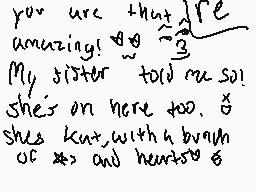 you are that
re
amazing! ♥♥
My sister told me so!
she's on here too.
shes kat, with a bunch
of ★s and hearts♥